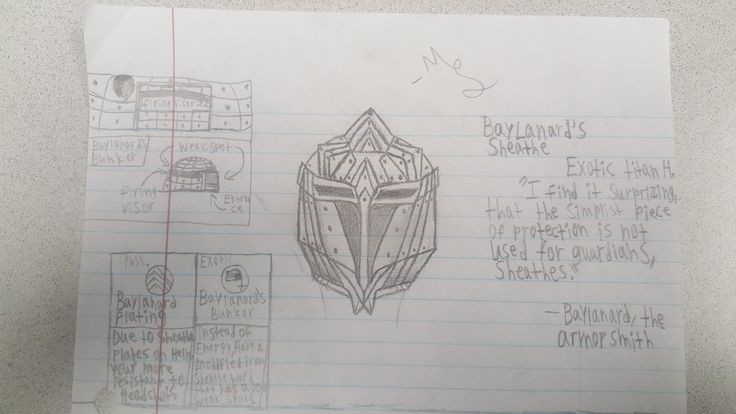 -Me
Firing visor
Baylanard's
Bunker
Weak spot
firing
visor
Entran
ce
Pass.
Baylanard
Plating
Due to Sheathe
Plates on Helm
your more
resistant to
Headshots
Exotic
Baylanard's
Bunker
Instead of
Energy, Have a
modified iron
Sheathe ward
that has a few
weak spots
BayLanard's
Sheathe
Exotic titan H.
"I find it Surprizing,
that the Simplist piece
of protection is not
used for guardians,
Sheathes."
- Baylanard, the
armor smith